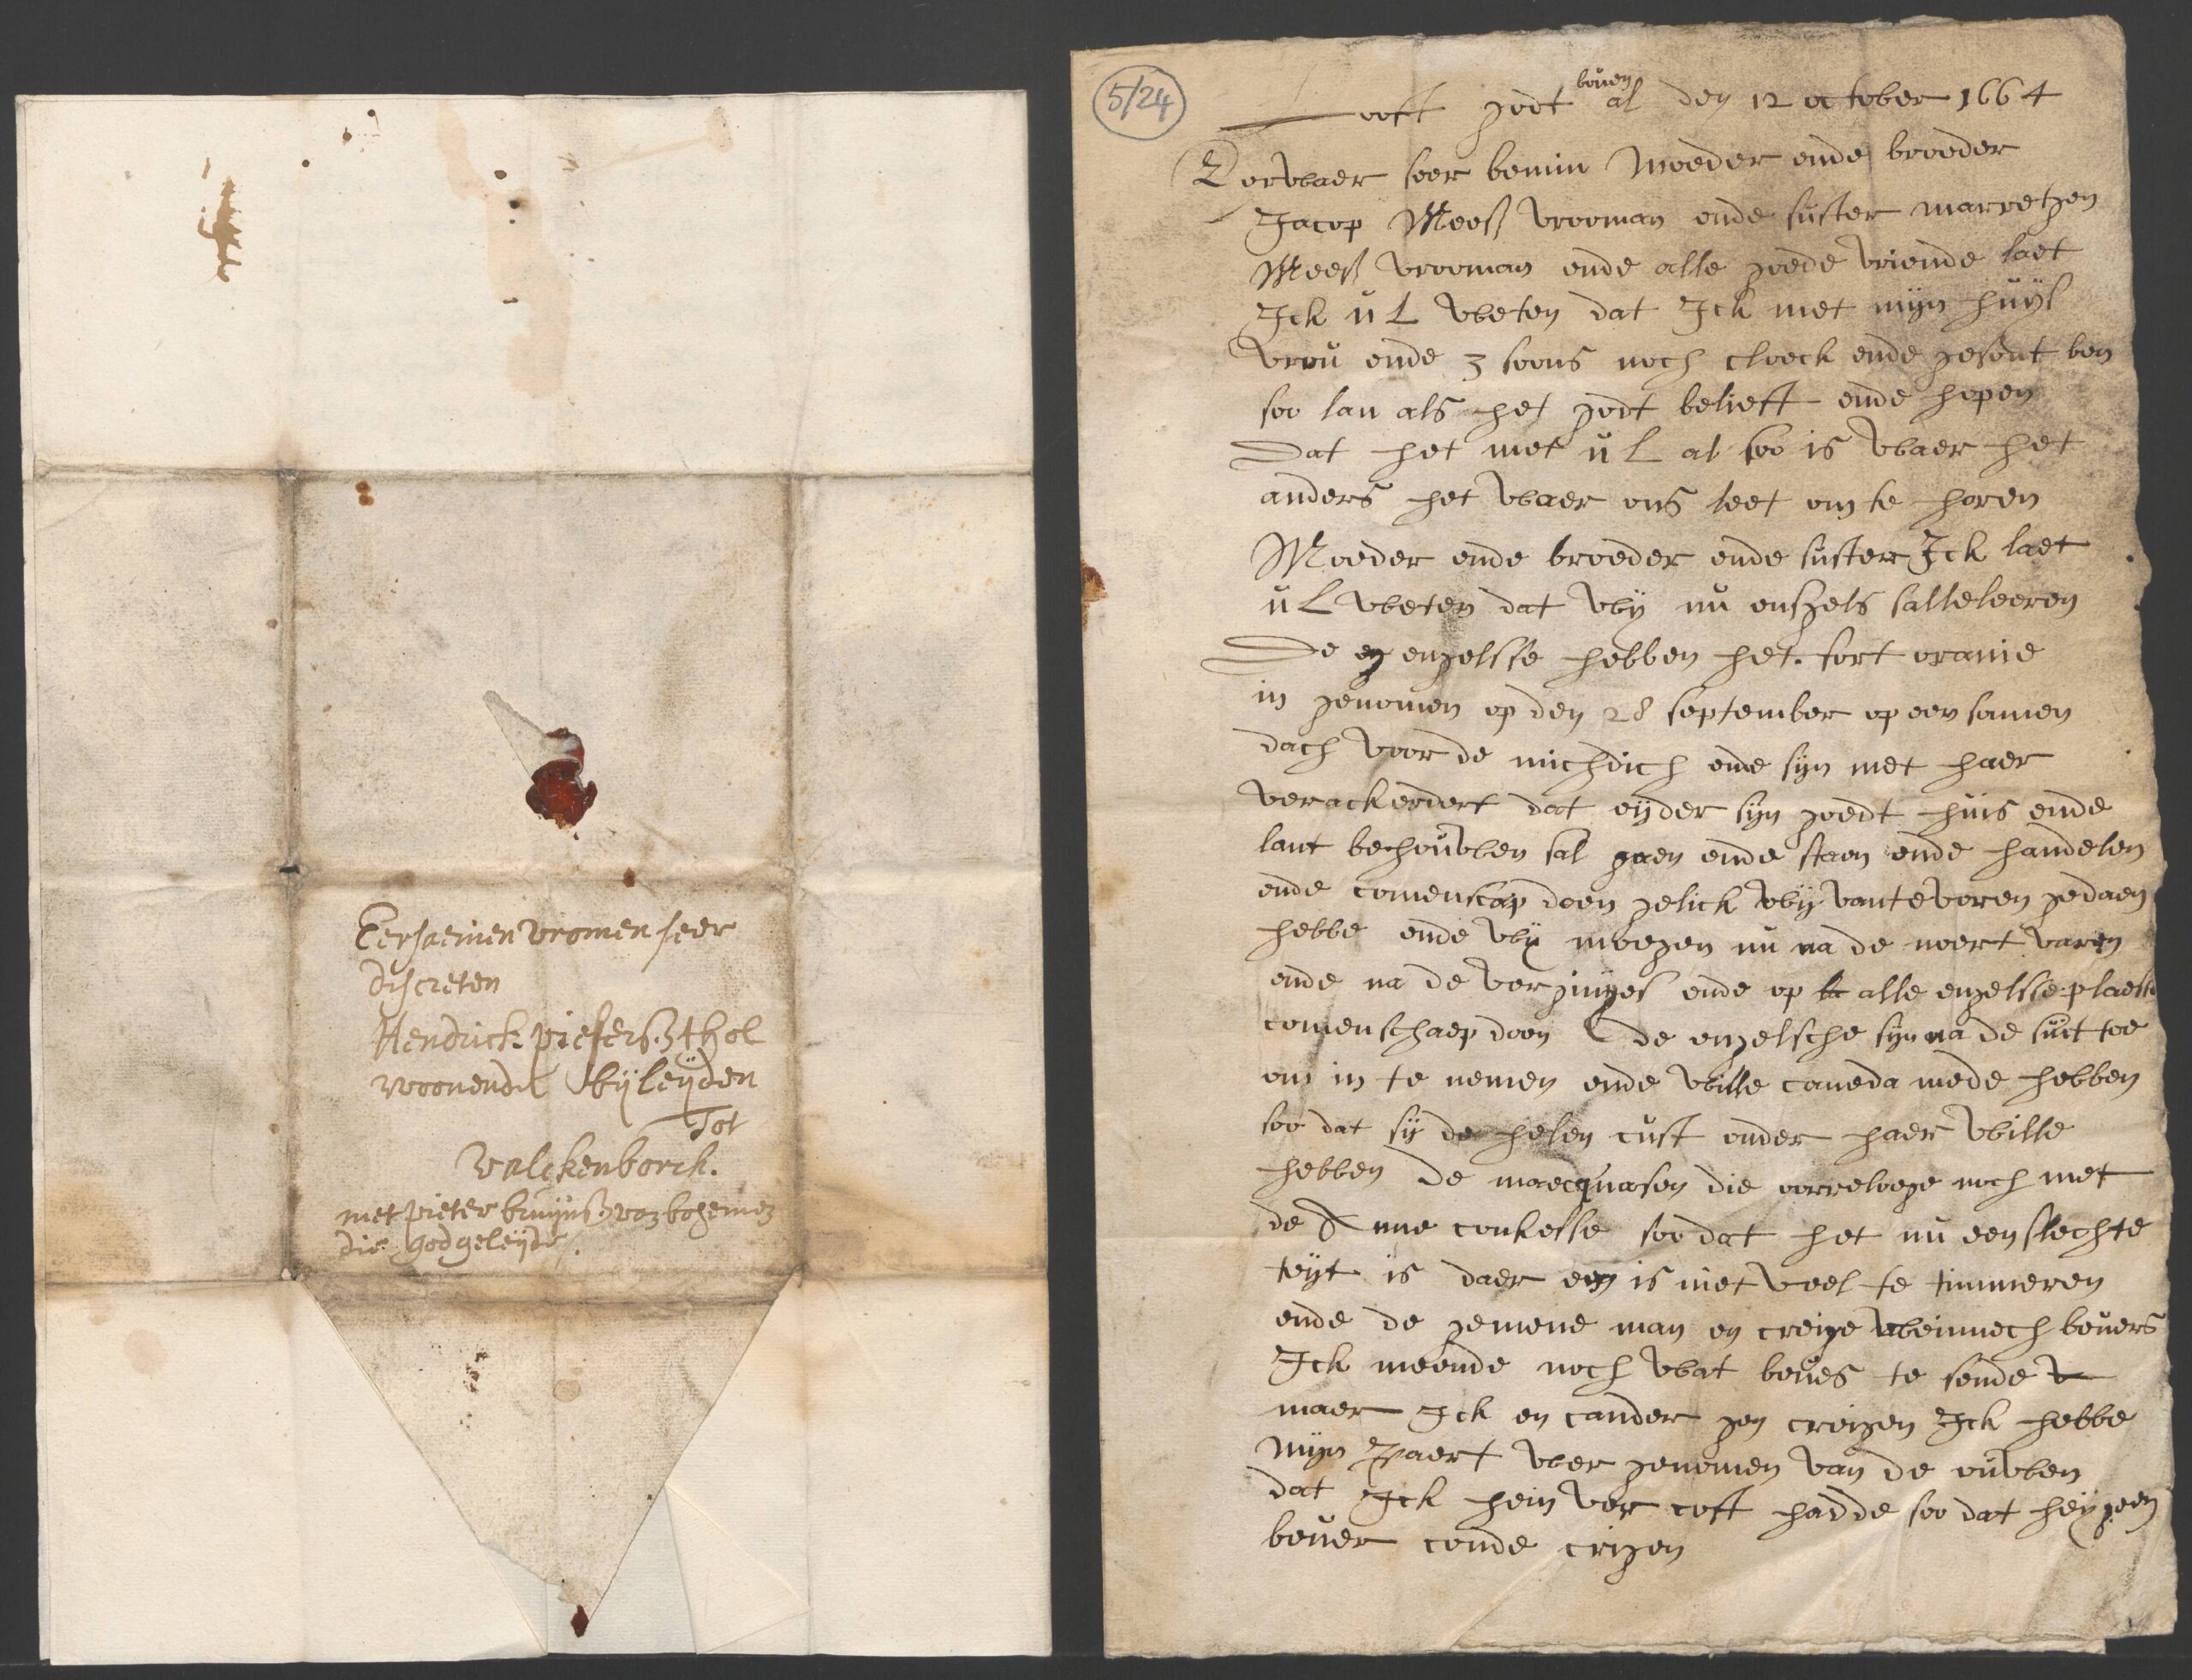 Eersaemen vromen seer
discreten
Hendrick pieters thol
woonende bij leijden
Tot
valckenborch.
met pieter bruijnss van bohemen
die god geleijde.
5/24
Looft godt boven al den 12 october 1664
Eervvaer seer bemin Moeder ende broeder
Jacop Meess vrooman ende suster marretgen
Meess vrooman ende alle goede vriende laet
Ick u L vveten dat Ick met mijn huijs
vrou ende 3 soons noch cloeck ende gesont ben
soo lan als het godt belieft ende hopen
Dat het met u L al soo is vvaer het
anders het vvaer ons leet om te horen
Moeder ende broeder ende suster Ick laet
u L vveten dat vvij nu enhgels salle leeren
De engelsse hebben het fort oranie
in genomen op den 28 september op een sonnen
dach voor de michdich ende sijn met haer
verackordert dat eijder sijn goedt huis ende
lant behouvven sal gaen ende staen ende handelen
ende comenscap doen gelick vvij van te voren gedaen
hebbe ende vvij moegen nu na de noert varen
ende na de verginges ende op alle engelsse plaetse
comenschaep doen de engelsche sijn na de suit toe
om in te nemen ende vville caneda mede hebben
soo dat sij de helen cust onder haer vville
hebben de maecquasen die oorreloege noch met
de Anne conkesse soo dat het nu een slechte
teijt is daer en is niet veel te timmeren
ende de gemene man en creige vveinnech bevers
Ick meende noch vvat beves te sende
maer Ick en cander gen creigen Ick hebbe
mijn Paert vver genomen van de ouvven
dat Ick hem ver coft hadde soo dat heij geen
bever conde crigen